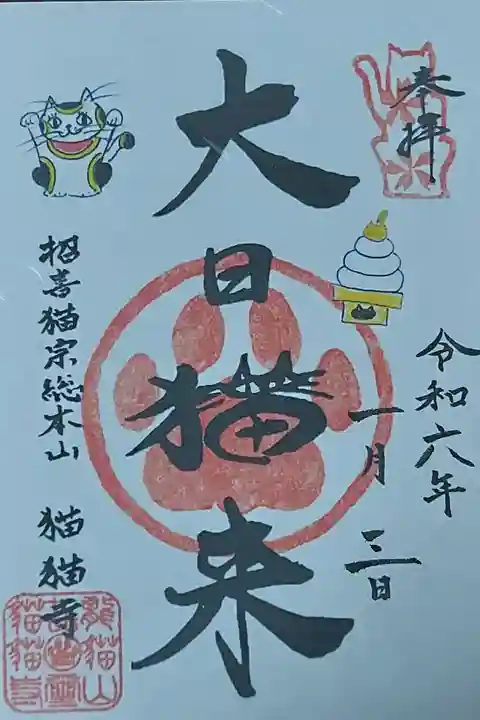 奉拝
令和六年
一月三日
大日猫来
招喜猫宗総本山 猫猫寺